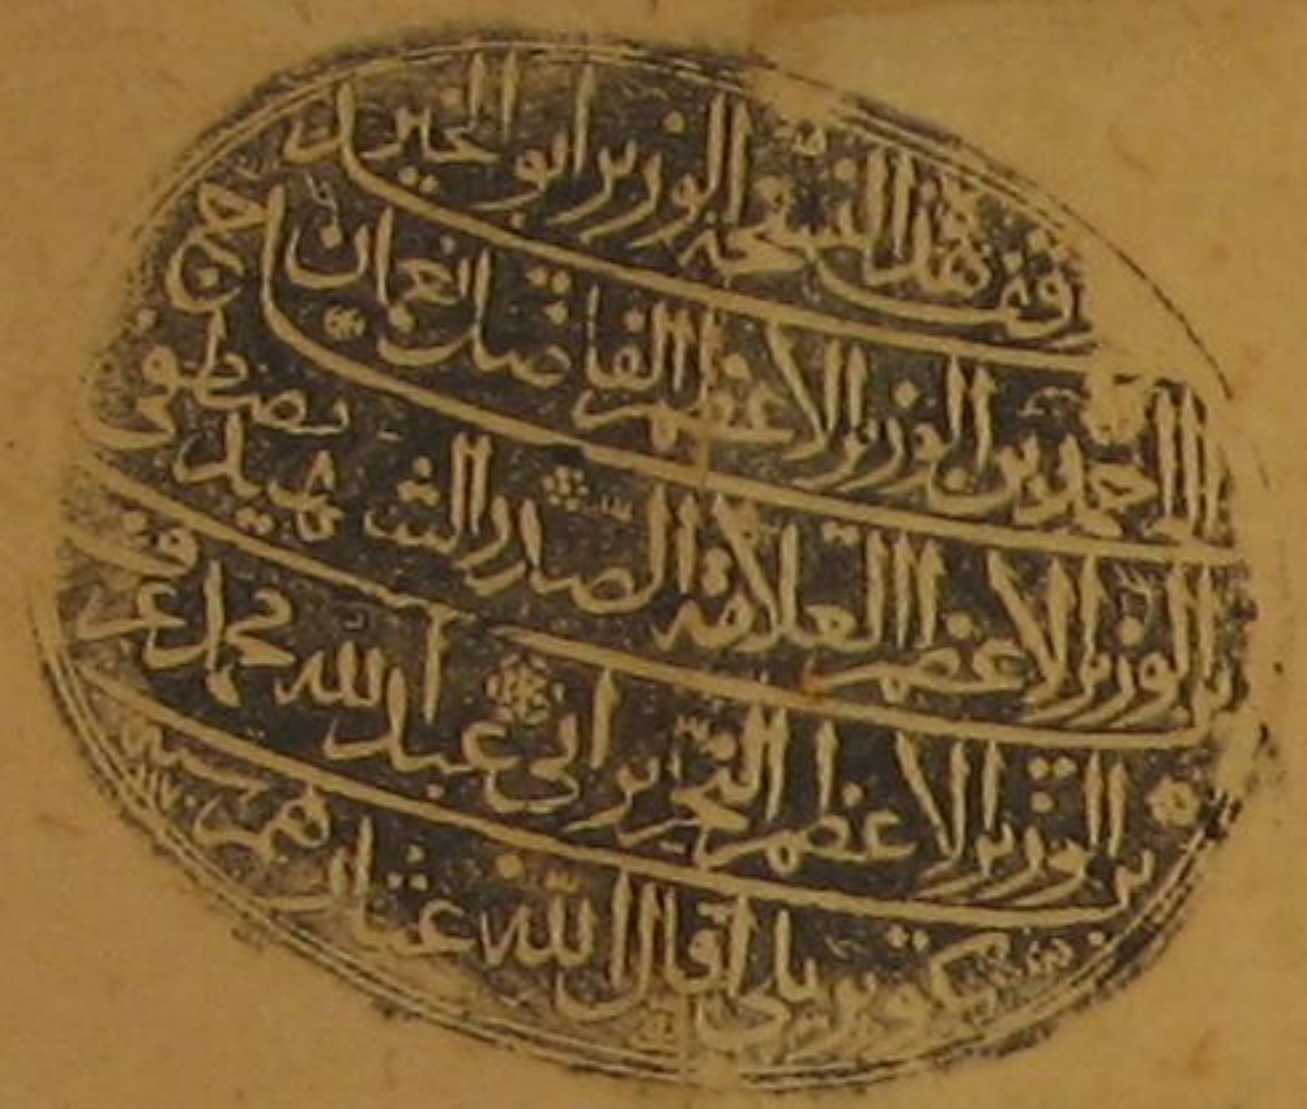 وقف هذا النسخة الوزير ابو الخير
الحاج احمد بن الوزير الاعظم الفاضل نعمان
بن الوزير الاعظم العلامة الصدر الشهيد مصطفى
بن الوزير الاعظم النحرير ابي عبد الله محمد عرف
بكوپريلي اقال الله عثارهم سنه